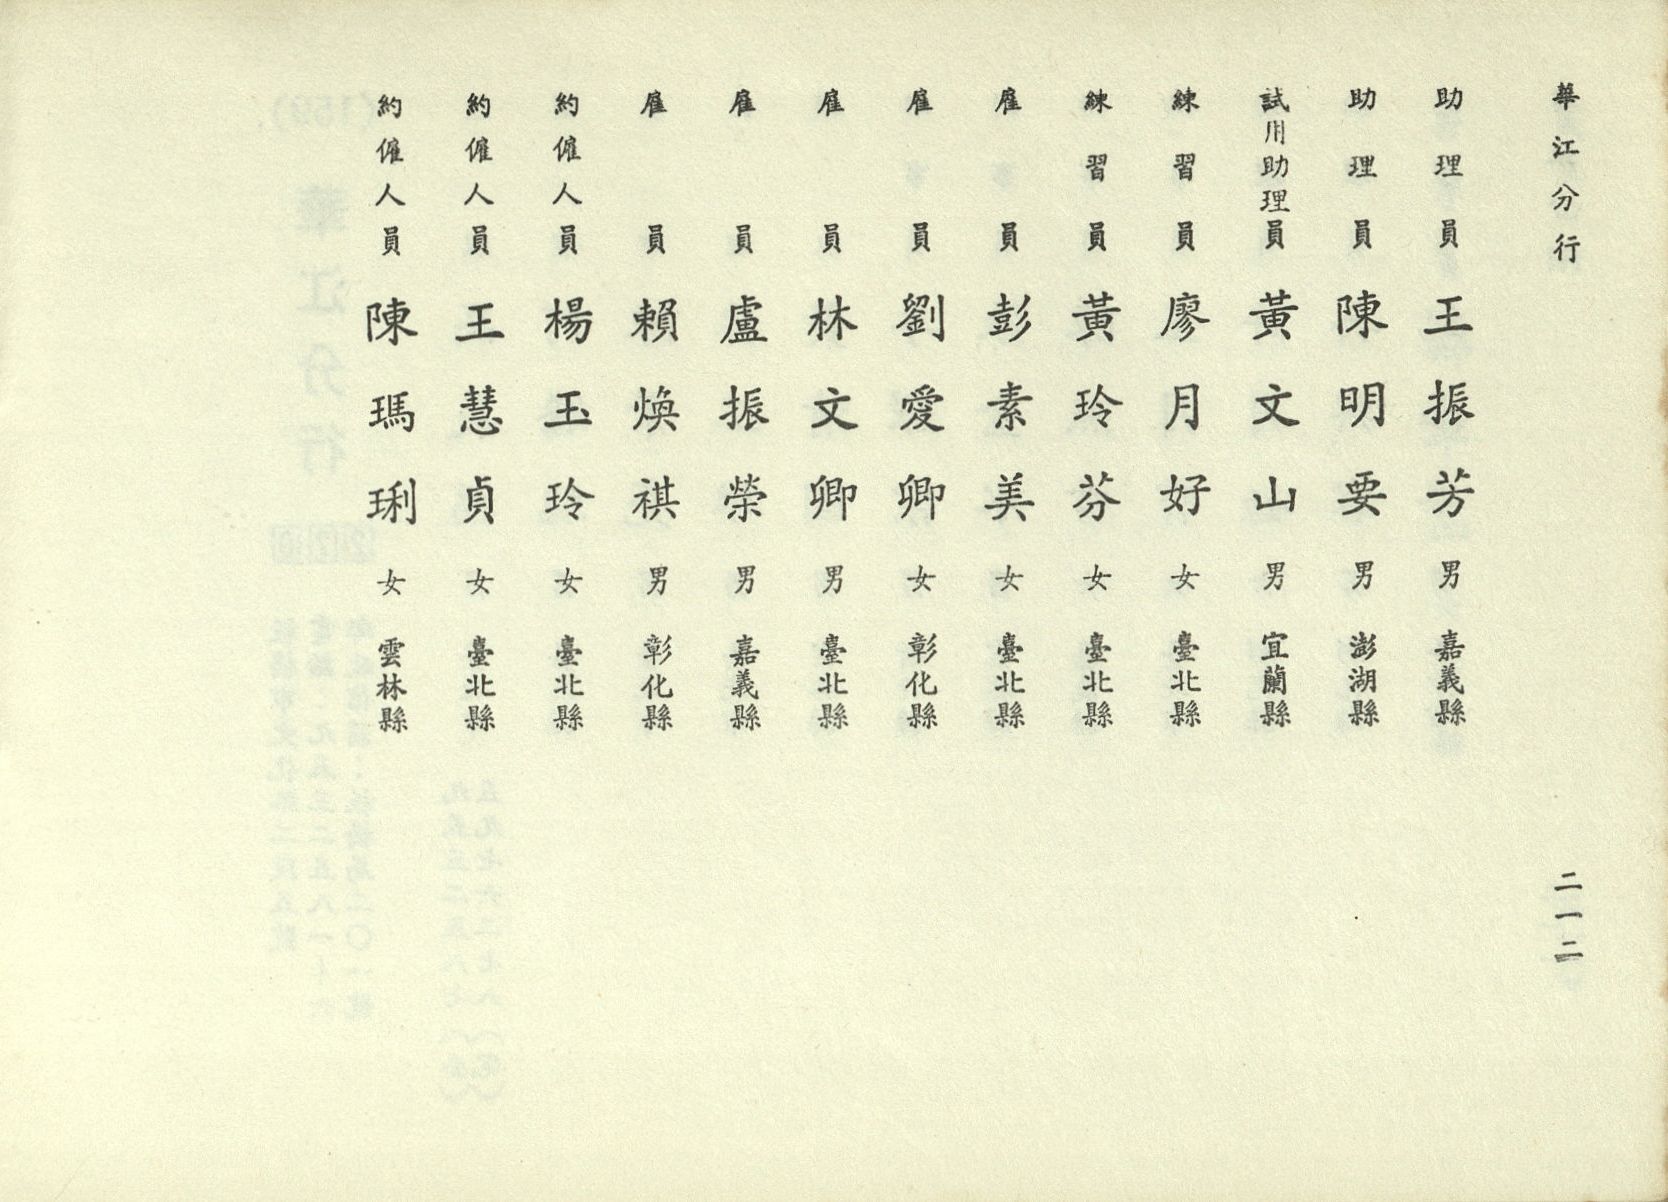 華江分行
二一二
助理員 王振芳 男 嘉義縣
助理員 陳明要 男 澎湖縣
試用助理員 黃文山 男 宜蘭縣
練習員 廖月好 女 臺北縣
練習員 黃玲芬 女 臺北縣
雇員 彭素美 女 臺北縣
雇員 劉愛卿 女 彰化縣
雇員 林文卿 男 臺北縣
雇員 盧振榮 男 嘉義縣
雇員 賴煥祺 男 彰化縣
約僱人員 楊玉玲 女 臺北縣
約僱人員 王慧貞 女 臺北縣
約僱人員 陳瑪琍 女 雲林縣